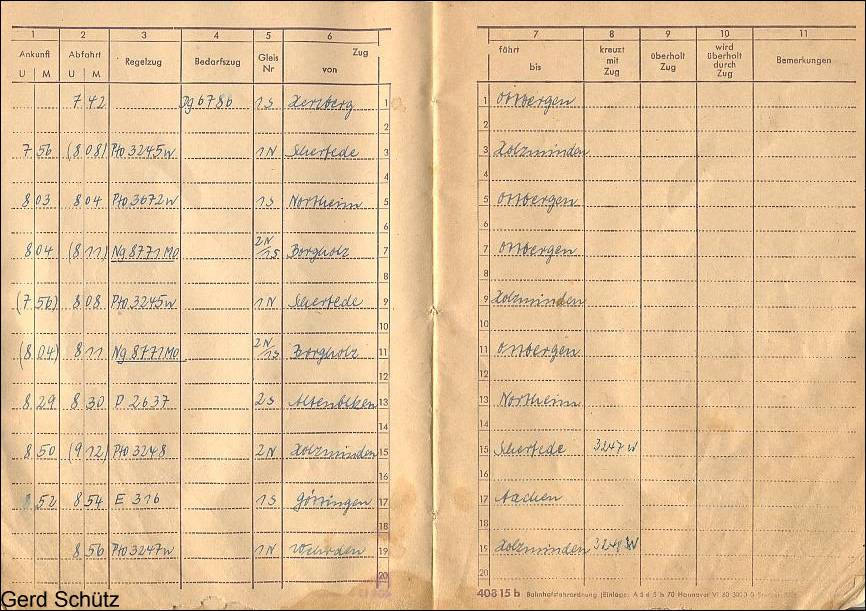 1 2 3 4 5 6 7 8 9 10 11
Ankunft Abfahrt Regelzug Bedarfszug Gleis Nr Zug von fährt bis kreuzt mit Zug überholt Zug wird überholt durch Zug Bemerkungen
U M U M
7 42 Dg 6786 1S Herzberg 1 1 Ottbergen
2 2
7 56 (8 08) Pto 3245w 1N Scherfede 3 3 Holzminden
4 4
8 03 8 04 Pto 3672w 1S Northeim 5 5 Ottbergen
6 6
8 04 (8 11) Ng 8771 Mo 2N/1S Borgholz 7 7 Ottbergen
8 8
(7 56) 8 08 Pto 3245w 1N Scherfede 9 9 Holzminden
10 10
(8 04) 8 11 Ng 8771 Mo 2N/1S Borgholz 11 11 Ottbergen
12 12
8 29 8 30 P 2637 2S Altenbeken 13 13 Northeim
14 14
8 50 (9 12) Pto 3248 2N Holzminden 15 15 Scherfede 3247 W
16 16
8 52 8 54 E 316 1S Göttingen 17 17 Aachen
18 18
8 56 Pto 3247w 1N Wehrden 19 19 Holzminden 3248 W
20 20
408 15 b Bahnhofsfahrordnung (Einlage) A 4 d 5 b 70 Hannover VI 60 3000
Gerd Schütz